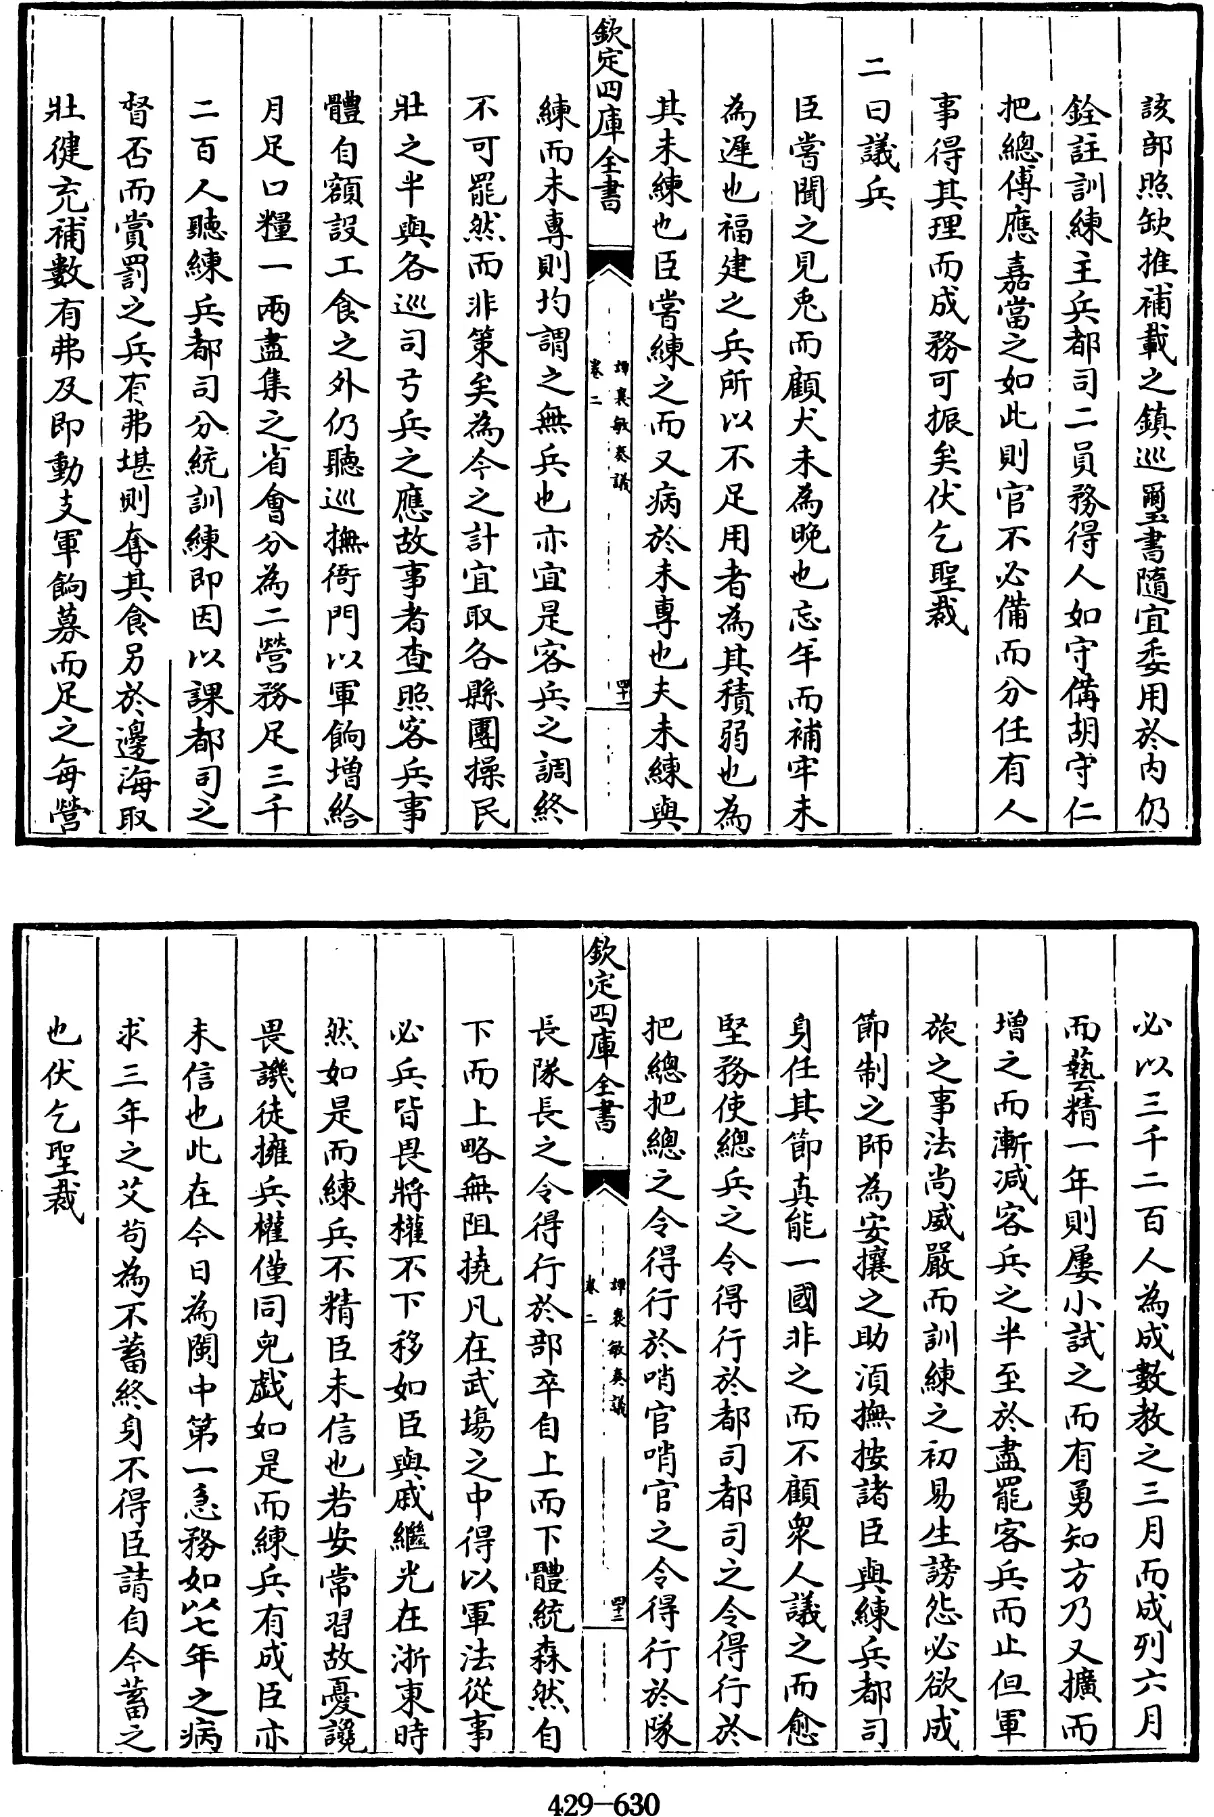 該部照缺推補載之鎮巡璽書隨宜委用於内仍
銓註訓練主兵都司二員務得人如守備胡守仁
把總傅應嘉當之如此則官不必備而分任有人
事得其理而成務可振矣伏乞聖裁
二曰議兵
臣嘗聞之見兎而顧犬未為晚也忘年而補牢未
為遲也福建之兵所以不足用者為其積弱也為
其未練也臣嘗練之而又病於未專也夫未練與
欽定四庫全書
譚襄敏奏議
卷二
四十一
練而未專則均謂之無兵也亦宜是客兵之調終
不可罷然而非策矣為今之計宜取各縣團操民
壯之半與各巡司弓兵之應故事者查照客兵事
體自額設工食之外仍聽巡撫衙門以軍餉增給
月足口糧一兩盡集之省會分為二營務足三千
二百人聽練兵都司分統訓練即因以課都司之
督否而賞罰之兵有弗堪則奪其食另於邊海取
壯健充補數有弗及即動支軍餉募而足之每營
必以三千二百人為成數教之三月而成列六月
而藝精一年則屢小試之而有勇知方乃又擴而
增之而漸減客兵之半至於盡罷客兵而止但軍
旅之事法尚威嚴而訓練之初易生謗怨必欲成
節制之師為安攘之助湏撫按諸臣與練兵都司
身任其節真能一國非之而不顧衆人議之而愈
堅務使總兵之令得行於都司都司之令得行於
把總把總之令得行於哨官哨官之令得行於隊
欽定四庫全書
譚襄敏奏議
卷二
四十二
長隊長之令得行於部卒自上而下體統森然自
下而上略無阻撓凡在武塲之中得以軍法從事
必兵皆畏將權不下移如臣與戚繼光在浙東時
然如是而練兵不精臣未信也若安常習故憂讒
畏譏徒擁兵權僅同兒戲如是而練兵有成臣亦
未信也此在今日為閩中第一急務如以七年之病
求三年之艾苟為不蓄終身不得臣請自今蓄之
也伏乞聖裁
429-630